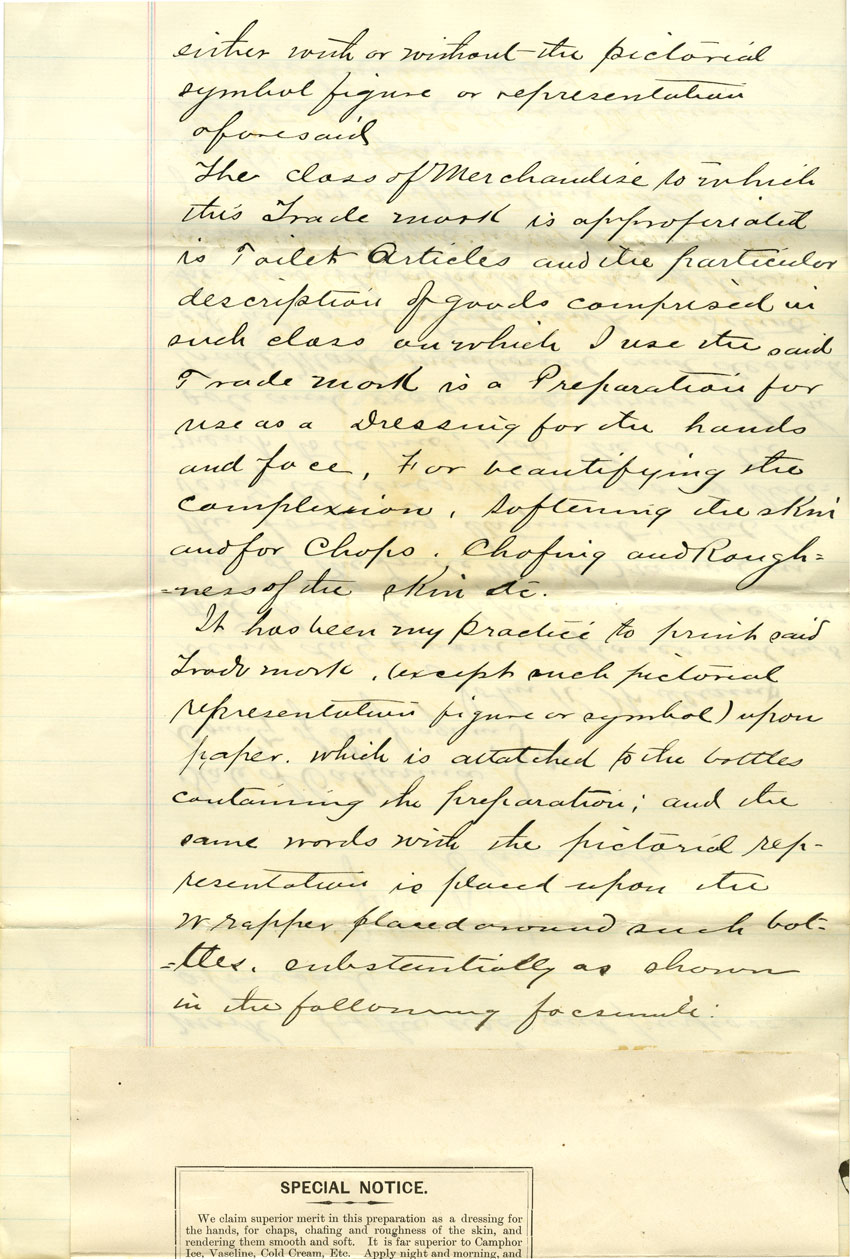 either with or without the pictorial
symbol figure or representation
aforesaid
The class of Merchandise to which
this Trade mark is appropriated
is Toilet Articles and the particular
description of goods comprised in
such class on which I use the said
Trade mark is a Preparation for
use as a Dressing for the hands
and face, For beautifying the
complexion, Softening the skin
and for Chaps. Chafing and Rough=
=ness of the skin etc.
It has been my practice to print said
Trade mark, (except such pictorial
representation figure or symbol) upon
paper. which is attatched to the bottles
containing the preparation; and the
same words with the pictorial rep-
resentation is placed upon the
wrapper placed around such bot=
=tles. substantially as shown
in the following facsimile:
SPECIAL NOTICE.
We claim superior merit in this preparation as a dressing for
the hands, for chaps, chafing and roughness of the skin, and
rendering them smooth and soft. It is far superior to Camphor
Ice, Vaseline, Cold Cream, Etc. Apply night and morning, and